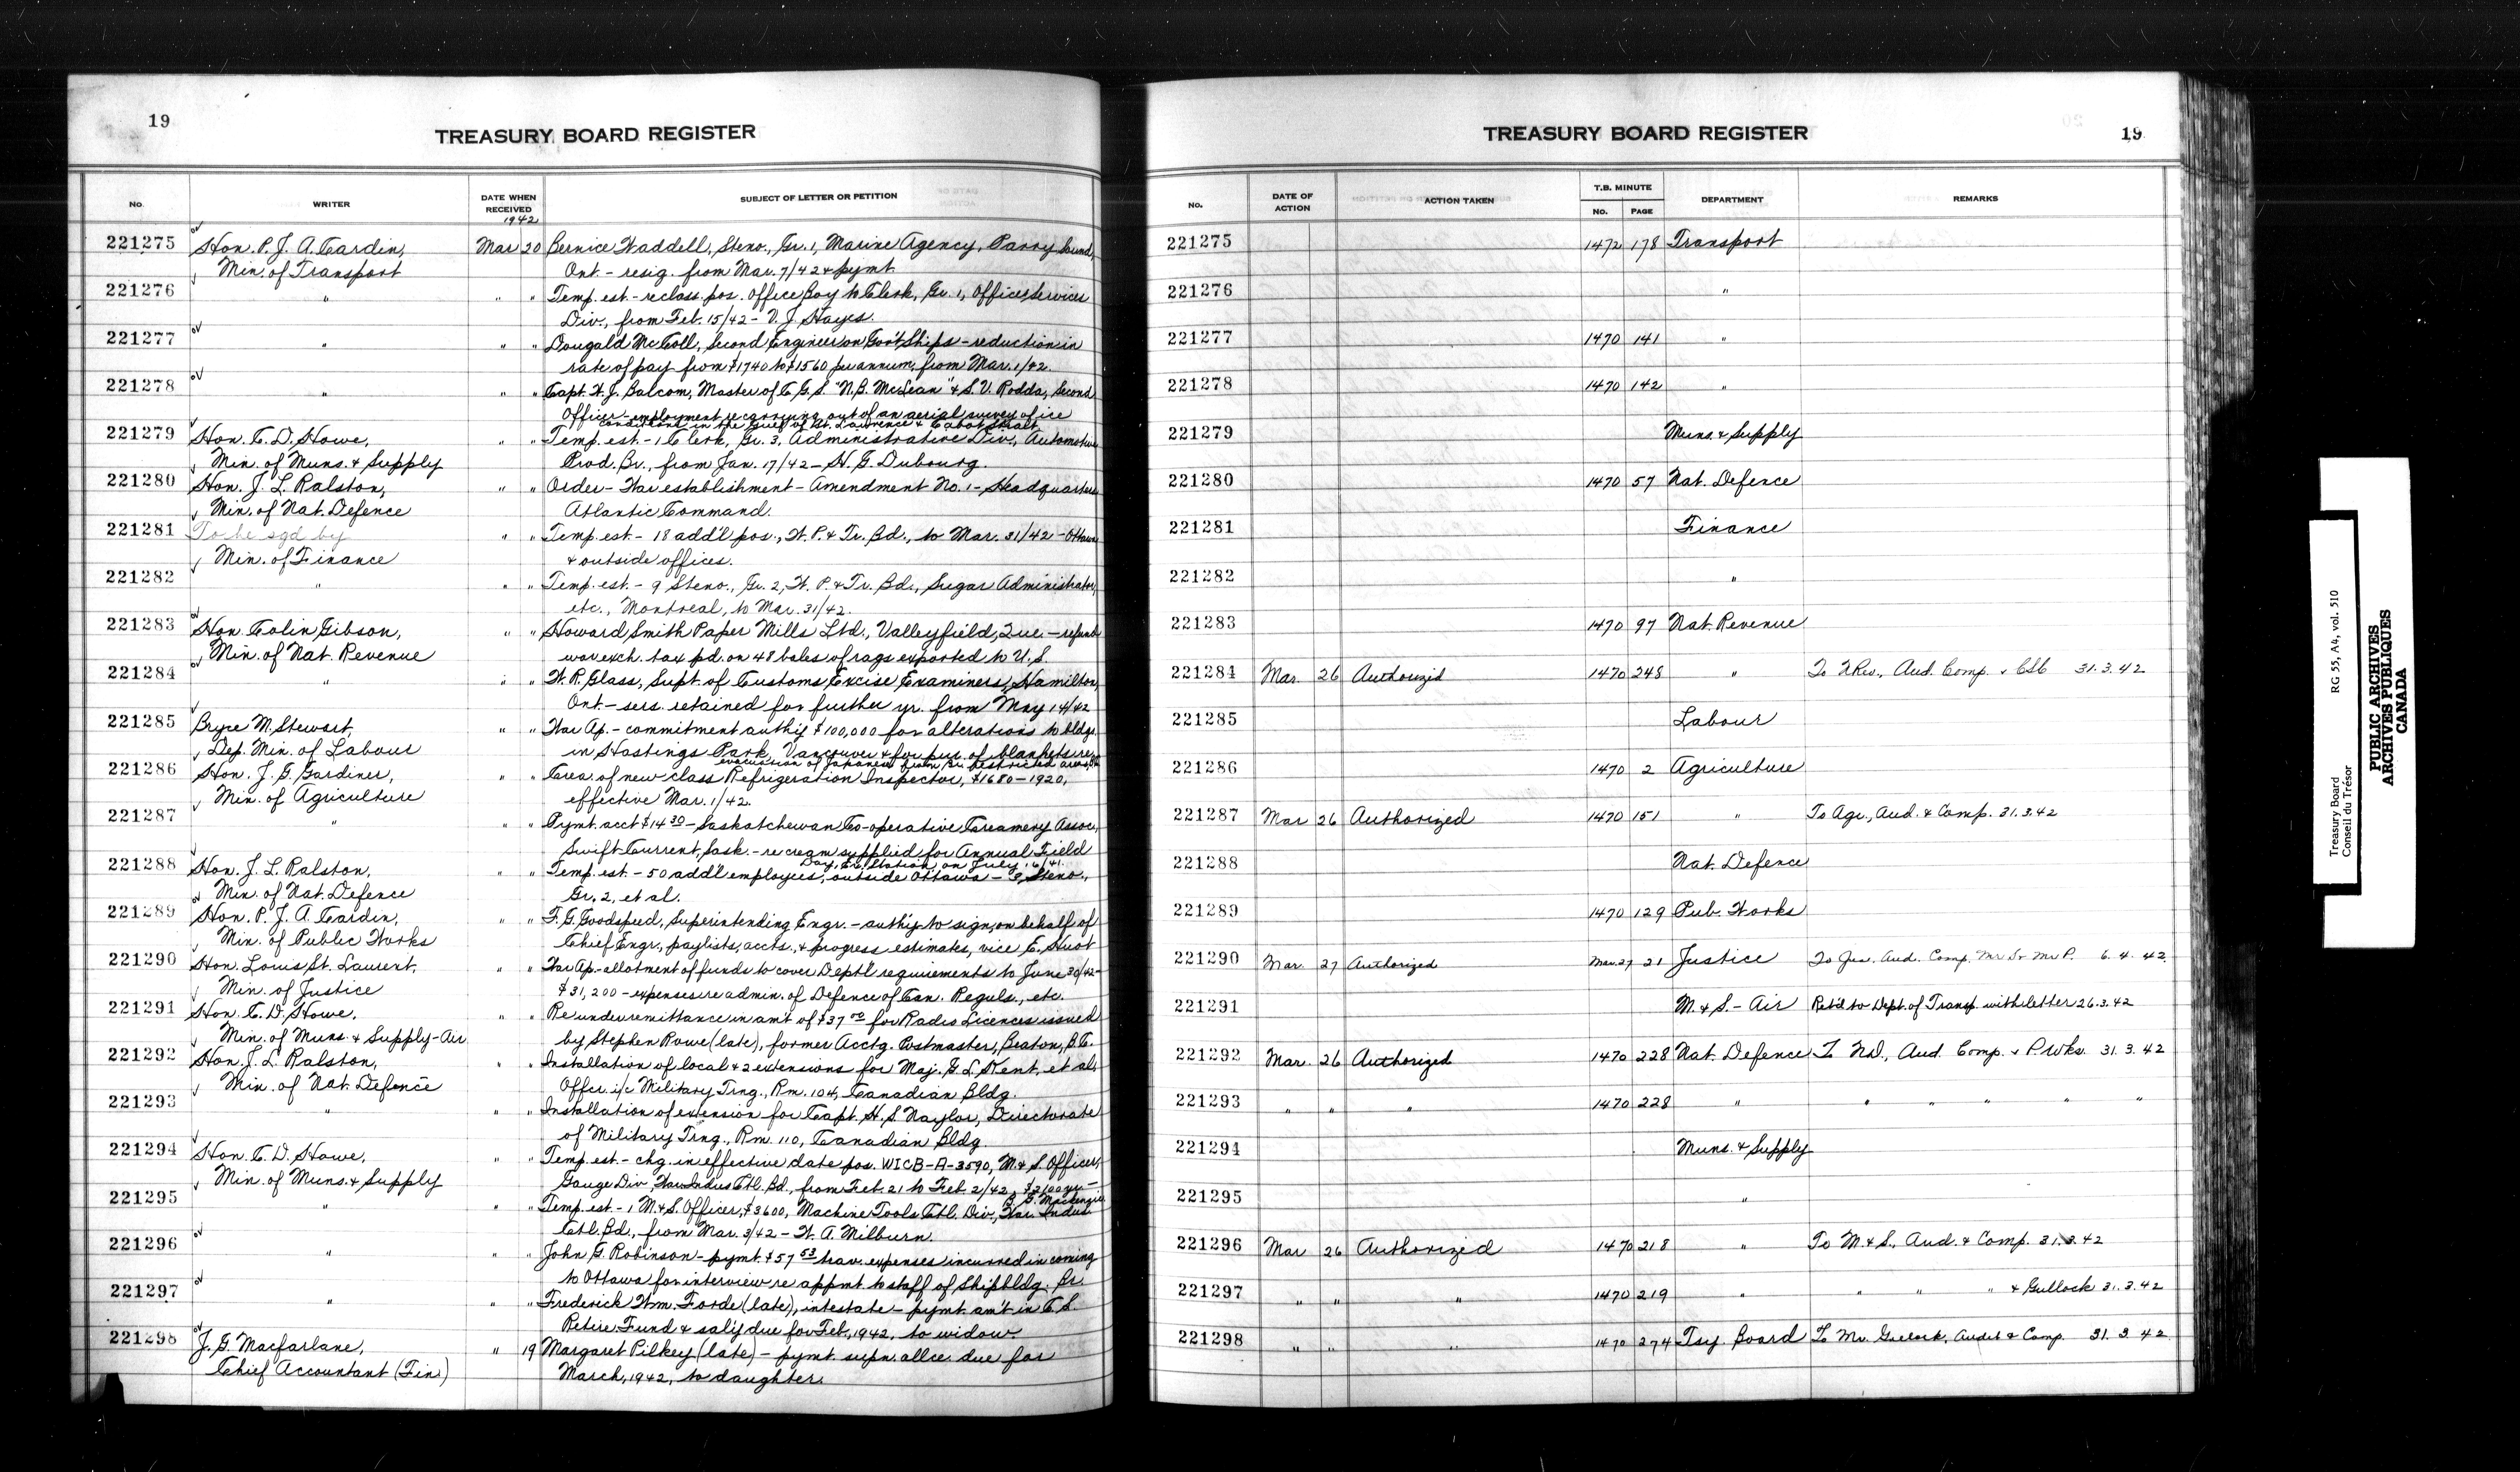 19
TREASURY BOARD REGISTER
No.
WRITER
DATE WHEN RECEIVED
SUBJECT OF LETTER OR PETITION
1942
221275 Hon. P. J. A. Cardin, Mar 20 Bernice Waddell, Steno., Gr. 1, Marine Agency, Parry Sound,
Min. of Transport Ont. - resig. from Mar. 7/42 & pymt.
221276 " " " Temp. est. - reclass. pos. Office Boy to Clerk, Gr. 1, Office Services
Div., from Feb. 15/42 - V. J. Hayes.
221277 " " " Dougald McColl, Second Engineer on Gov't Ships - reduction in
rate of pay from $1740 to $1560 per annum, from Mar. 1/42.
221278 " " " Capt. W. J. Balcom, Master of C.G.S. "N.B. McLean" & S. V. Rodda, Second
Officer - employment re carrying out of an aerial survey of ice
conditions in the Gulf of St. Lawrence & Cabot Strait
221279 Hon. C. D. Howe, " " Temp. est. - 1 Clerk, Gr. 3, Administrative Div., Automotive
Min. of Muns. & Supply Prod. Br., from Jan. 17/42 - H. G. Dubourg.
221280 Hon. J. L. Ralston, " " Order - War establishment - Amendment No. 1 - Headquarters
Min. of Nat. Defence Atlantic Command.
221281 To be sgd by " " Temp. est. - 18 add'l pos., W. P. & Tr. Bd., to Mar. 31/42 - Ottawa
Min. of Finance & outside offices.
221282 " " " Temp. est. - 9 Steno., Gr. 2, W. P. & Tr. Bd., Sugar Administrator,
etc., Montreal, to Mar. 31/42.
221283 Hon. Colin Gibson, " " Howard Smith Paper Mills Ltd., Valleyfield, Que. - refund
Min. of Nat. Revenue war exch. tax pd. on 48 bales of rags exported to U.S.
221284 " " " W. R. Glass, Supt. of Customs Excise Examiners, Hamilton,
Ont. - sers. retained for further yr. from May 14/42
221285 Bryce M. Stewart, " " War Ap. - commitment auth'y $100,000 for alterations to bldgs.
Dep. Min. of Labour in Hastings Park, Vancouver & for pur. of blankets re
evacuation of Japanese from Br. restricted areas,
221286 Hon. J. G. Gardiner, " " Crea. of new class Refrigeration Inspector, $1680-1920,
Min. of Agriculture effective Mar. 1/42.
221287 " " " Pymt. acct $14 30 - Saskatchewan Co-operative Creamery Assoc.,
Swift Current, Sask. - re cream supplied for Annual Field
Day, Ex. Station on July 16/41.
221288 Hon. J. L. Ralston, " " Temp. est. - 50 add'l employees, outside Ottawa - 3 Steno.,
Min. of Nat. Defence Gr. 2, et al.
221289 Hon. P. J. A. Cardin, " " F. G. Goodspeed, Superintending Engr. - auth'y to sign, on behalf of
Min. of Public Works Chief Engr., paylists, accts. & progress estimates, vice E. Huot
221290 Hon. Louis St. Laurent, " " War Ap. - allotment of funds to cover Dept'l requirements to June 30/42 -
Min. of Justice $31,200 - expenses re admin. of Defence of Can. Reguls., etc.
221291 Hon. C. D. Howe, " " Re under remittance in am't of $37 50 for Radio Licences issued
Min. of Muns. & Supply - Air by Stephen Rowe (late), former Acctg. Postmaster, Beaton, B.C.
221292 Hon. J. L. Ralston, " " Installation of local & 2 extensions for Maj. G. L. Kent, et al,
Min. of Nat. Defence Offcr. i/c Military Trng., Rm. 104, Canadian Bldg.
221293 " " " Installation of extension for Capt. H. S. Naylor, Directorate
of Military Trng., Rm. 110, Canadian Bldg
221294 Hon. C. D. Howe, " Temp. est. - chg. in effective date pos. WICB-A-3590, M. & S. Officer,
Min. of Muns. & Supply Gauge Div., War Indus Ctl. Bd., from Feb. 21 to Feb. 2/42, $2100 yr. -
Mackenzie
221295 " " " Temp. est. - 1 M. & S. Officer, $3600, Machine Tools Ctl. Div., War Indus
Ctl. Bd., from Mar. 3/42 - W. A. Milburn.
221296 " " " John G. Robinson - pymt. $57 53 trav. expenses incurred in coming
to Ottawa for interview re appmt. to staff of Shipbldg. Br.
221297 " " " Frederick Wm. Forde (late), intestate - pymt. am't in C. S.
Retire. Fund & sal'y due for Feb., 1942, to widow
221298 J. G. Macfarlane, " 19 Margaret Pilkey (late) - pymt. supn. allce. due for
Chief Accountant (Fin) March, 1942, to daughter.
TREASURY BOARD REGISTER
19
No.
DATE OF ACTION
ACTION TAKEN
T.B. MINUTE
No. PAGE
DEPARTMENT
REMARKS
221275 1472 178 Transport
221276 "
221277 1470 141 "
221278 1470 142 "
221279 Muns. & Supply
221280 1470 57 Nat. Defence
221281 Finance
221282 "
221283 1470 97 Nat. Revenue
221284 Mar. 26 Authorized 1470 248 " To N Rev., Aud. Comp. & CSC 31.3.42
221285 Labour
221286 1470 2 Agriculture
221287 Mar 26 Authorized 1470 151 " To Agr., Aud. & Comp. 31.3.42
221288 Nat. Defence
221289 1470 129 Pub. Works
221290 Mar. 27 Authorized Mar. 27 21 Justice To Jus. Aud. Comp. 6.4.42.
221291 M. & S. - Air Ret'd to Dept. of Transp. with letter 26.3.42
221292 Mar. 26 Authorized 1470 228 Nat. Defence To ND., Aud. Comp. & P Wks. 31.3.42
221293 " " " 1470 228 " " " " " "
221294 Muns. & Supply
221295 "
221296 Mar 26 Authorized 1470 218 " To M. & S., Aud. & Comp. 31.3.42
221297 " " " 1470 219 " " " " & Gullock 31.3.42
221298 " " " 1470 274 Tsy. Board To Mr. Gullock, Audit & Comp. 31.3.42
Treasury Board
Conseil du Trésor
RG 55, A4, vol. 510
PUBLIC ARCHIVES
ARCHIVES PUBLIQUES
CANADA